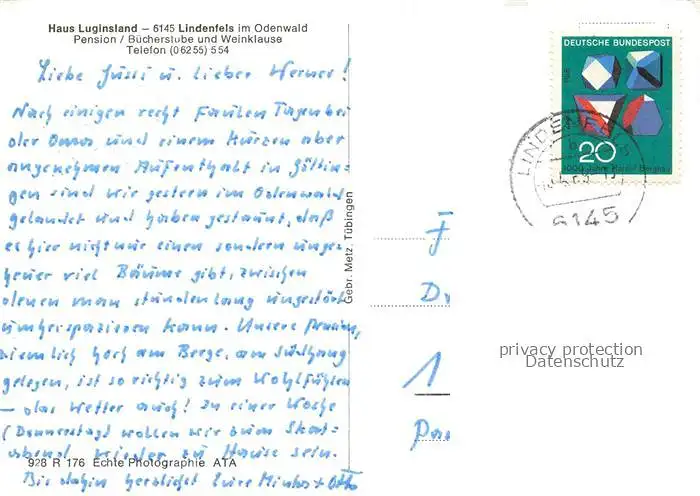 Haus Luginsland – 6145 Lindenfels im Odenwald
Pension / Bücherstube und Weinklause
Telefon (06255) 554
Liebe Jussi u. lieber Werner!
Nach einigen recht faulen Tagen bei
der Oma und einem kurzen aber
angenehmen Aufenthalt in Göttin-
gen sind wir gestern im Odenwald
gelandet und haben gestaunt, daß
es hier nicht nur einen sondern unge-
heuer viel Bäume gibt, zwischen
denen man stundenlang ungestört
umherspazieren kann. Unsere Pension,
ziemlich hoch am Berge, am Südhang
gelegen, ist so richtig zum Wohlfühlen
– das Wetter auch! In einer Woche
(Donnerstag) wollen wir zum Skat-
abend wieder zu Hause sein.
Bis dahin herzlichst Eure + Otto
928 R 176 Echte Photographie ATA
Gebr. Metz, Tübingen
DEUTSCHE BUNDESPOST
1968
20
1000 Jahre Harzer Bergbau
LINDENFELS
6145
F
Dr
1
Pa
privacy protection
Datenschutz